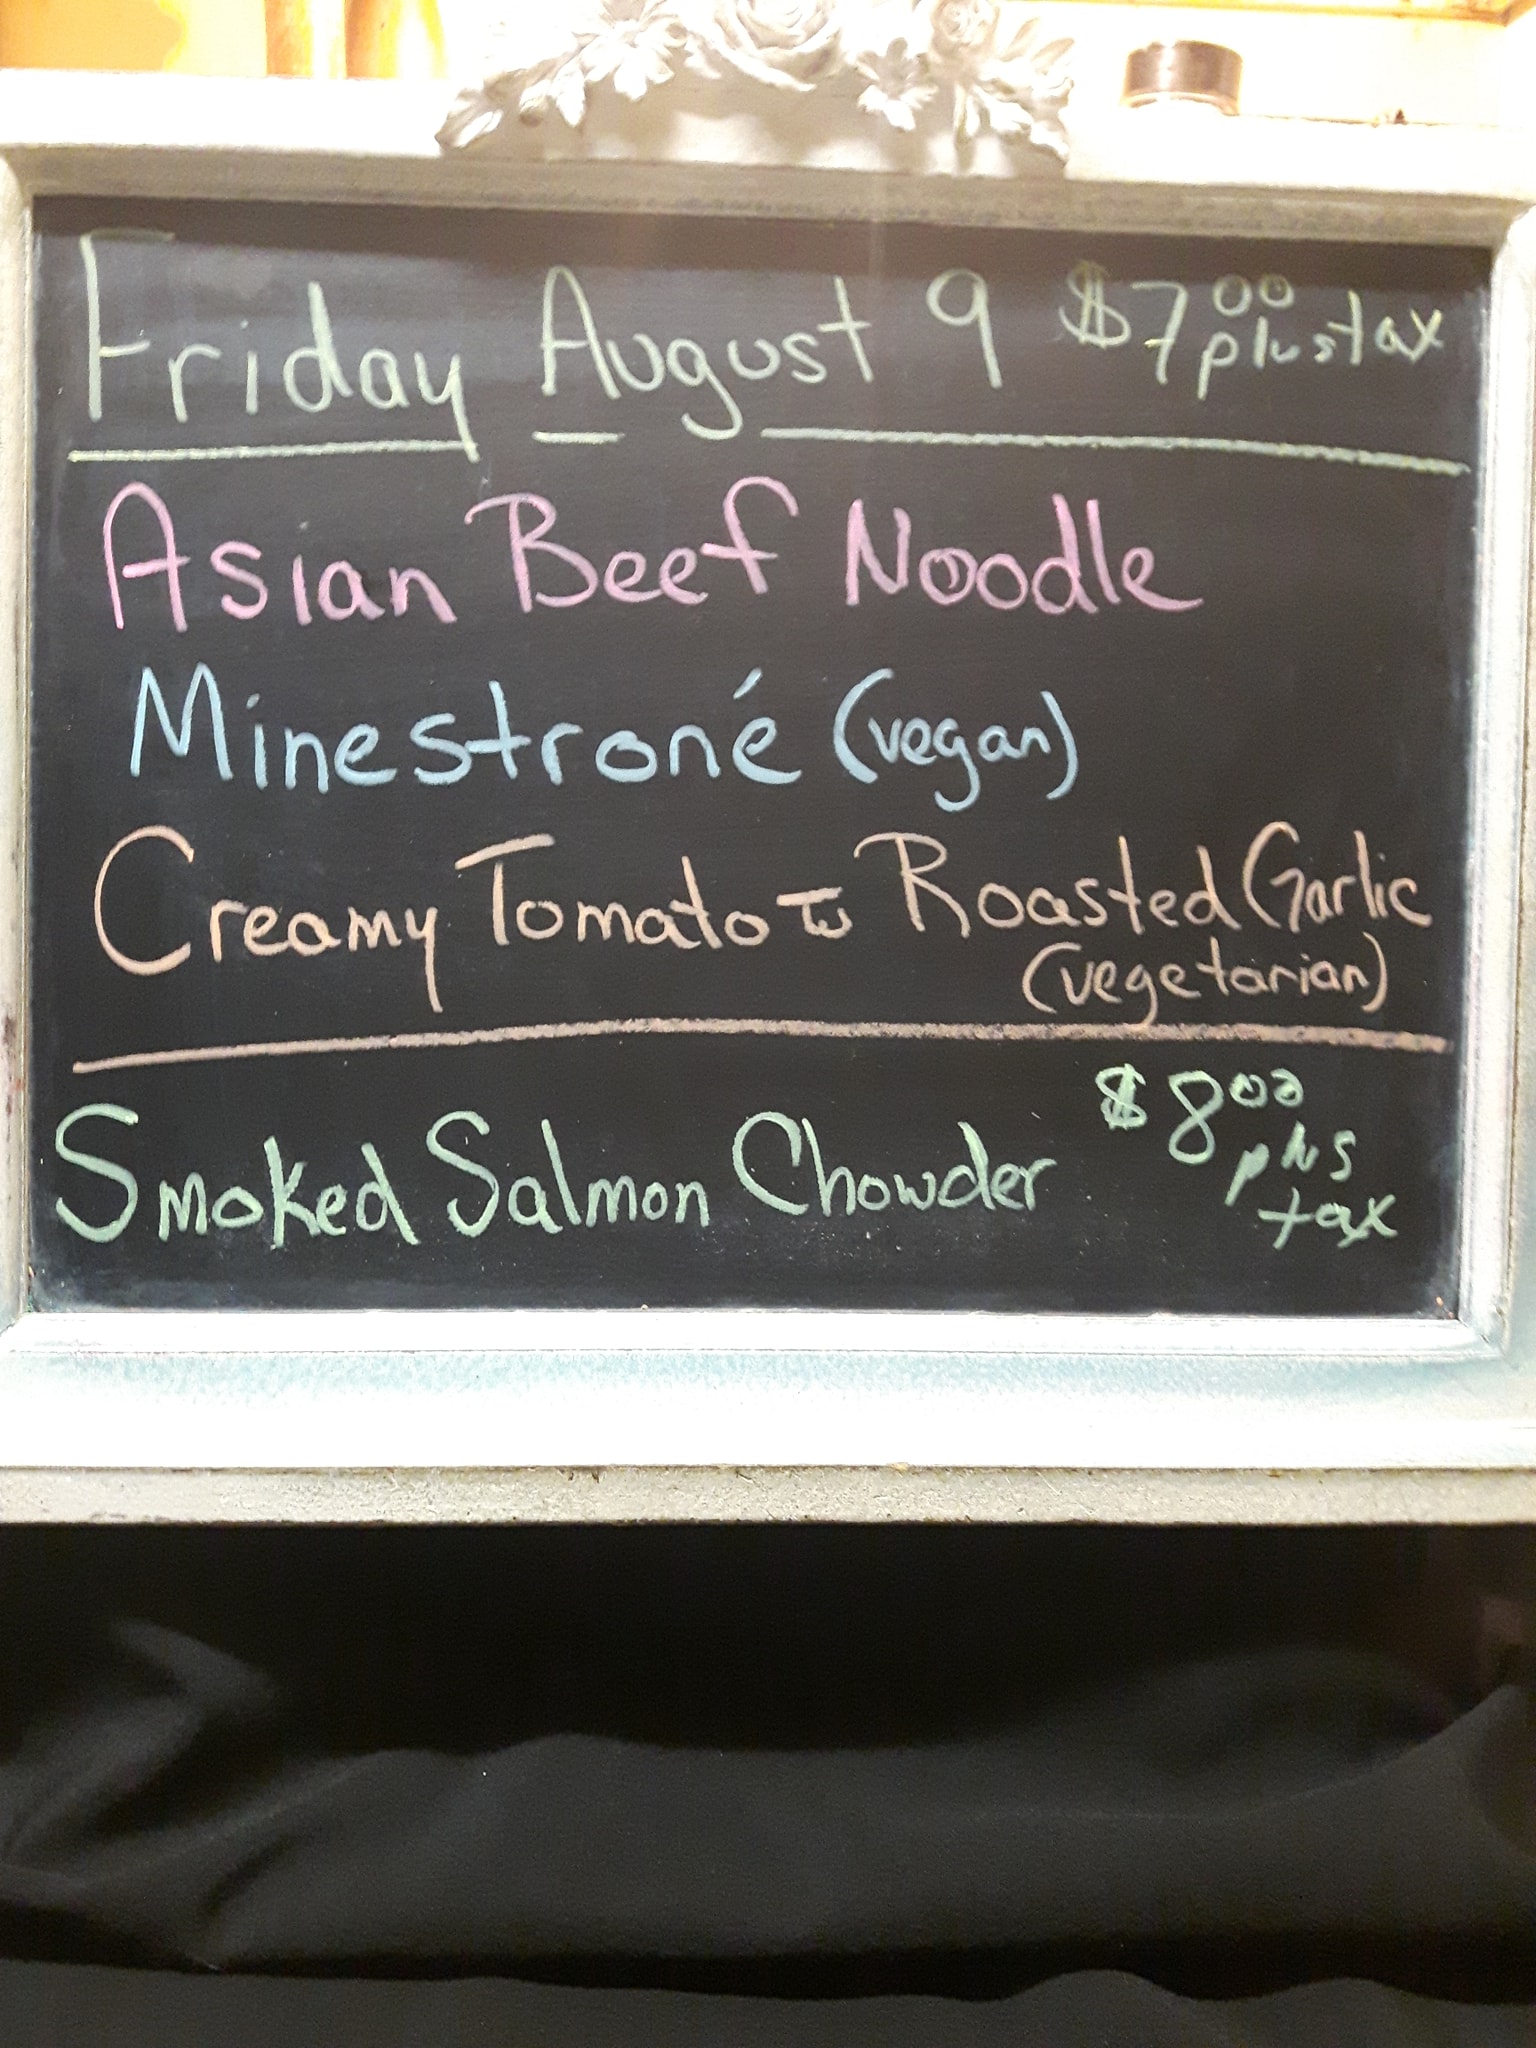 Friday August 9 $7.00 plus tax
Asian Beef Noodle
Minestroné (vegan)
Creamy Tomato w Roasted Garlic
(vegetarian)
Smoked Salmon Chowder $8.00 plus tax